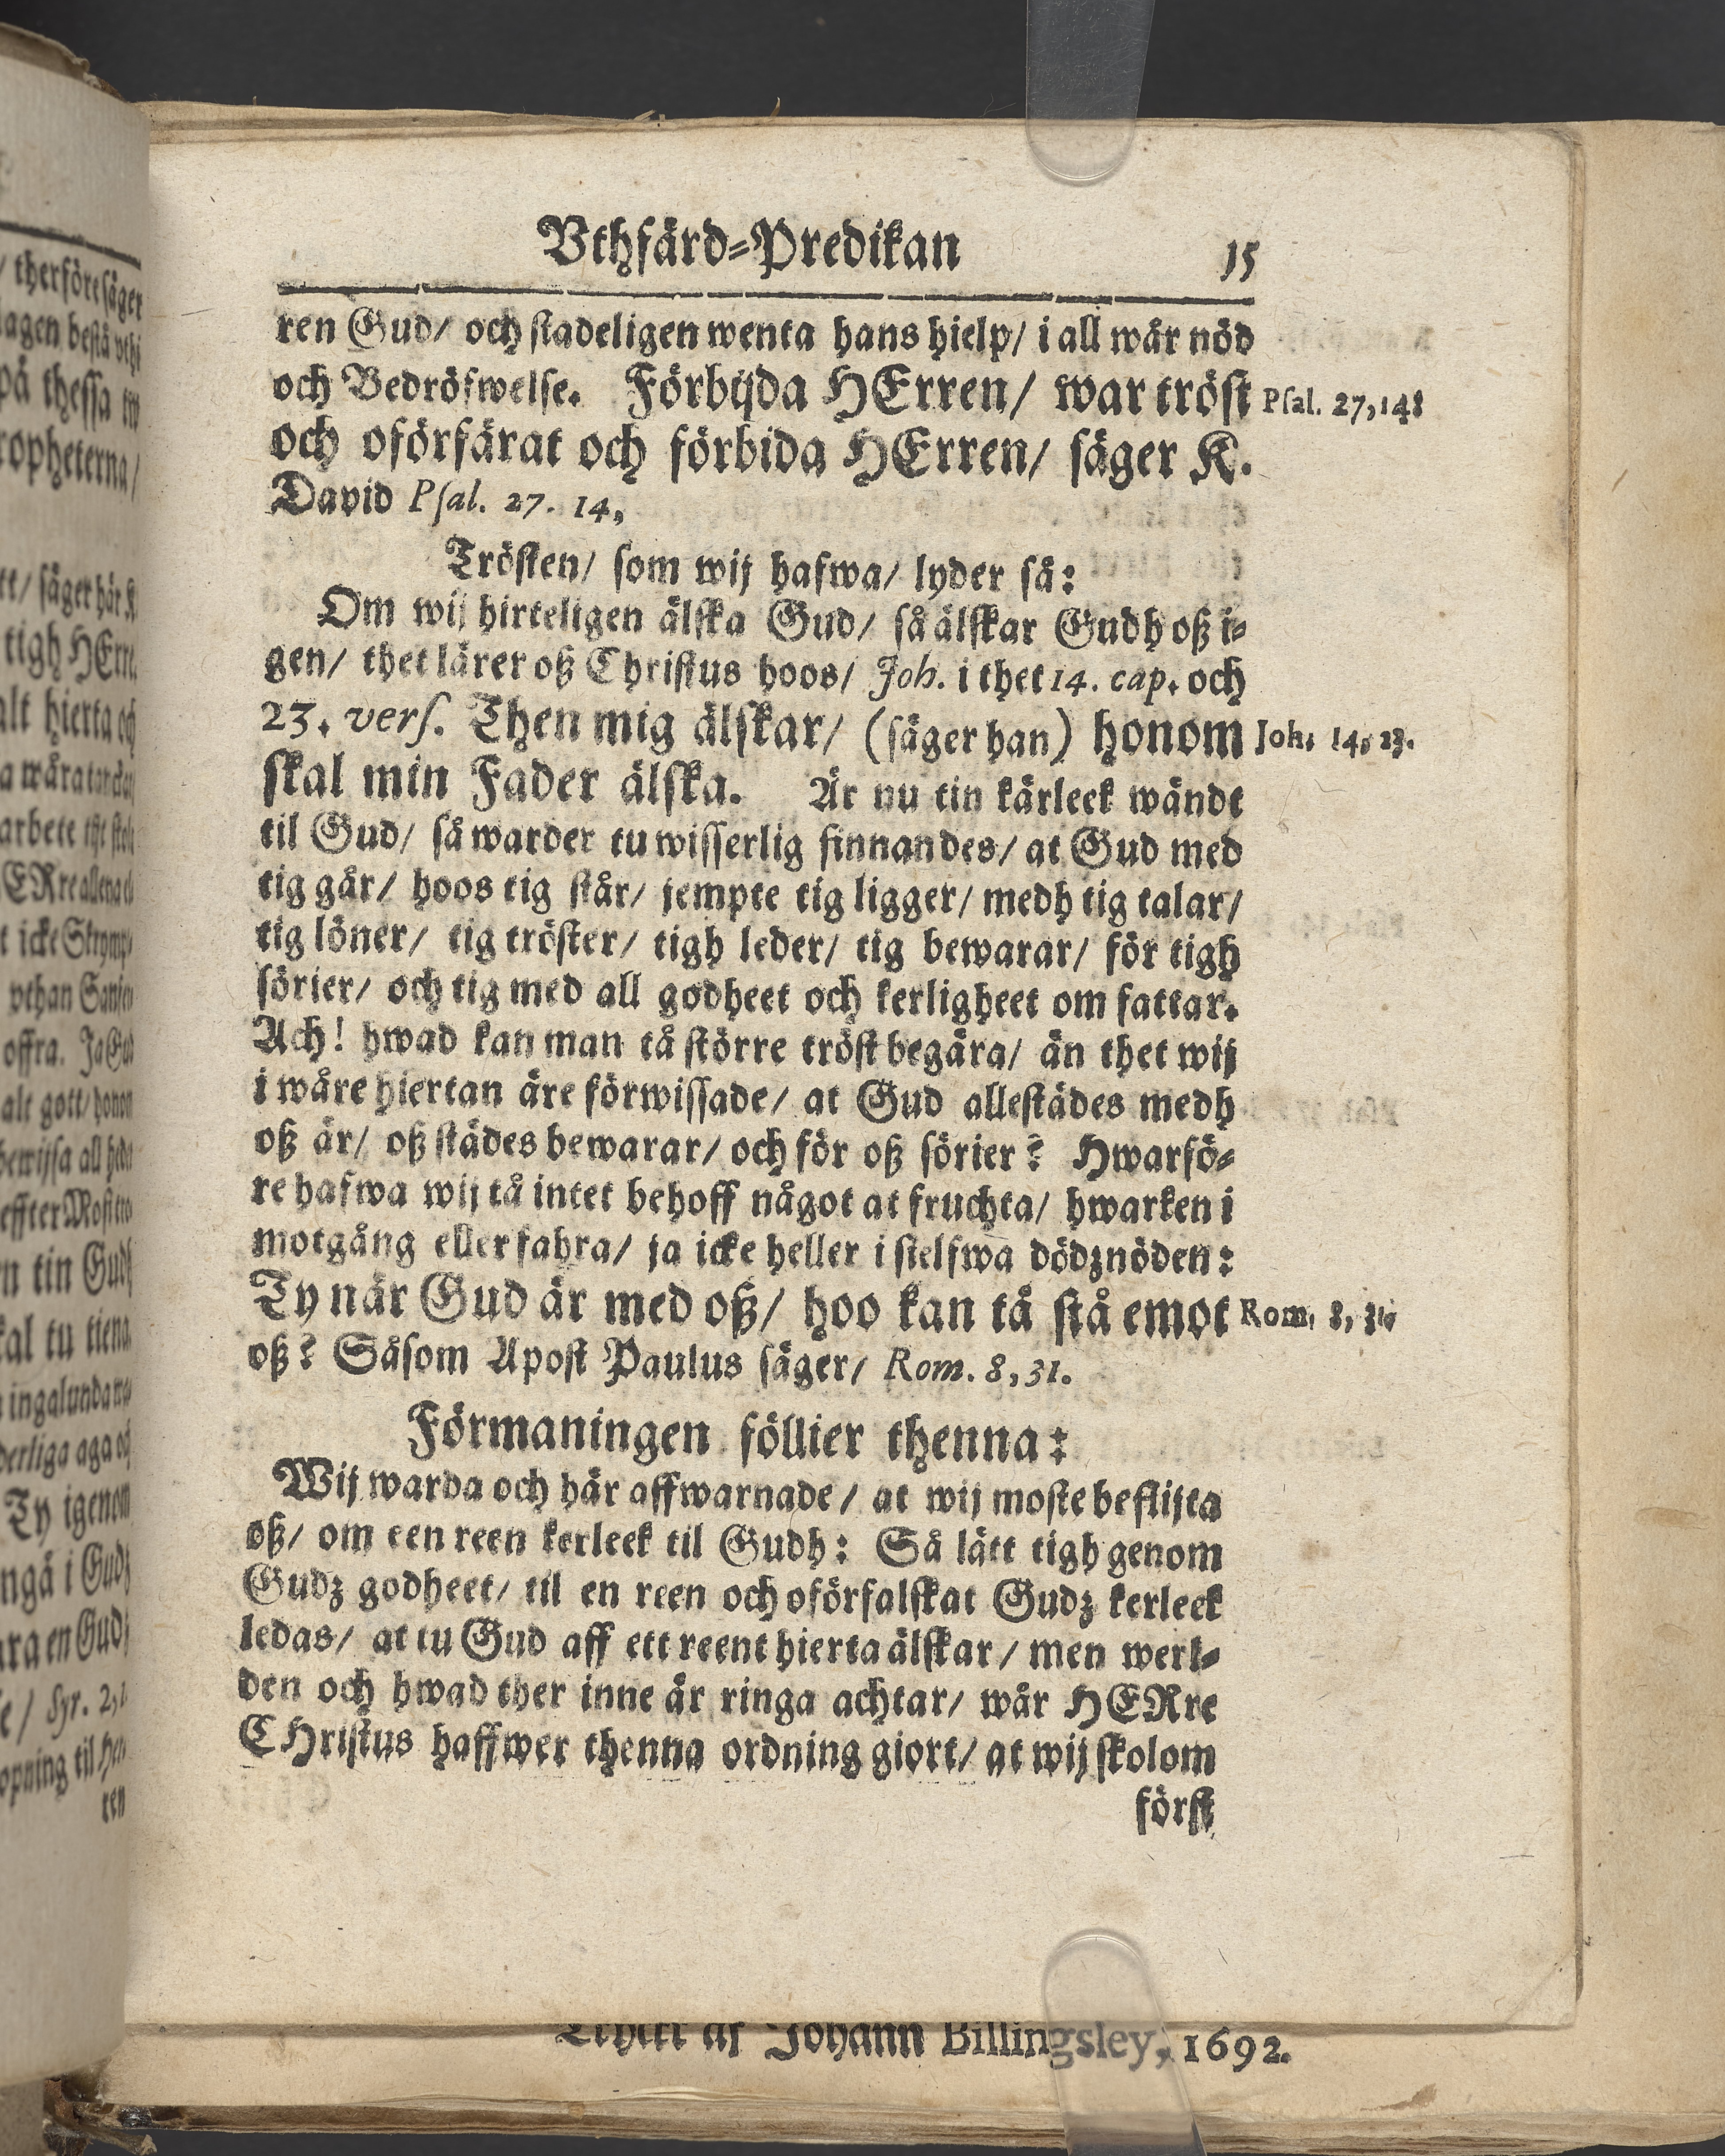 Vthfärd-Predikan 15
ren Gud/ och stadeligen wenta hans hielp/ i all wår nöd
och Bedröfwelse. Förbijda HErren/ war tröst Psal. 27,14.
och oförfärat och förbida HErren/ säger K.
David Psal. 27. 14,
Trösten/ som wij hafwa/ lyder så:
Om wij hirteligen älska Gud/ så älskar Gudh oß i-
gen/ thet lärer oß Christus hoos/ Joh. i thet 14. cap. och
23. vers. Then mig älskar/ (säger han) honom Joh. 14, 23.
skal min Fader älska. Är nu tin kärleek wände
til Gud/ så warder tu wisserlig finnandes/ at Gud med
tig går/ hoos tig står/ jempte tig ligger/ medh tig talar/
tig löner/ tig tröster/ tigh leder/ tig bewarar/ för tigh
sörier/ och tig med all godheet och kerligheet om fattar.
Ach! hwad kan man tå större tröst begära/ än thet wij
i wåre hiertan äre förwissade/ at Gud allestädes medh
oß är/ oß städes bewarar/ och för oß sörier? Hwarfö-
re hafwa wij tå intet behoff något at fruchta/ hwarken i
motgång eller fahra/ ja icke heller i sielfwa dödznöden:
Ty när Gud är med oß/ hoo kan tå stå emot Rom. 8, 31.
oß? Såsom Apost Paulus säger/ Rom. 8, 31.
Förmaningen föllier thenna:
Wij warda och här affwarnade/ at wij moste beflijta
oß/ om een reen kerleek til Gudh: Så lätt tigh genom
Gudz godheet/ til en reen och oförfalskat Gudz kerleek
ledas/ at tu Gud aff ett reent hierta älskar/ men werl-
den och hwad ther inne är ringa achtar/ wår HERre
CHristus haffwer thenna ordning giort/ at wij skolom
först
af Johann Billingsley, 1692.